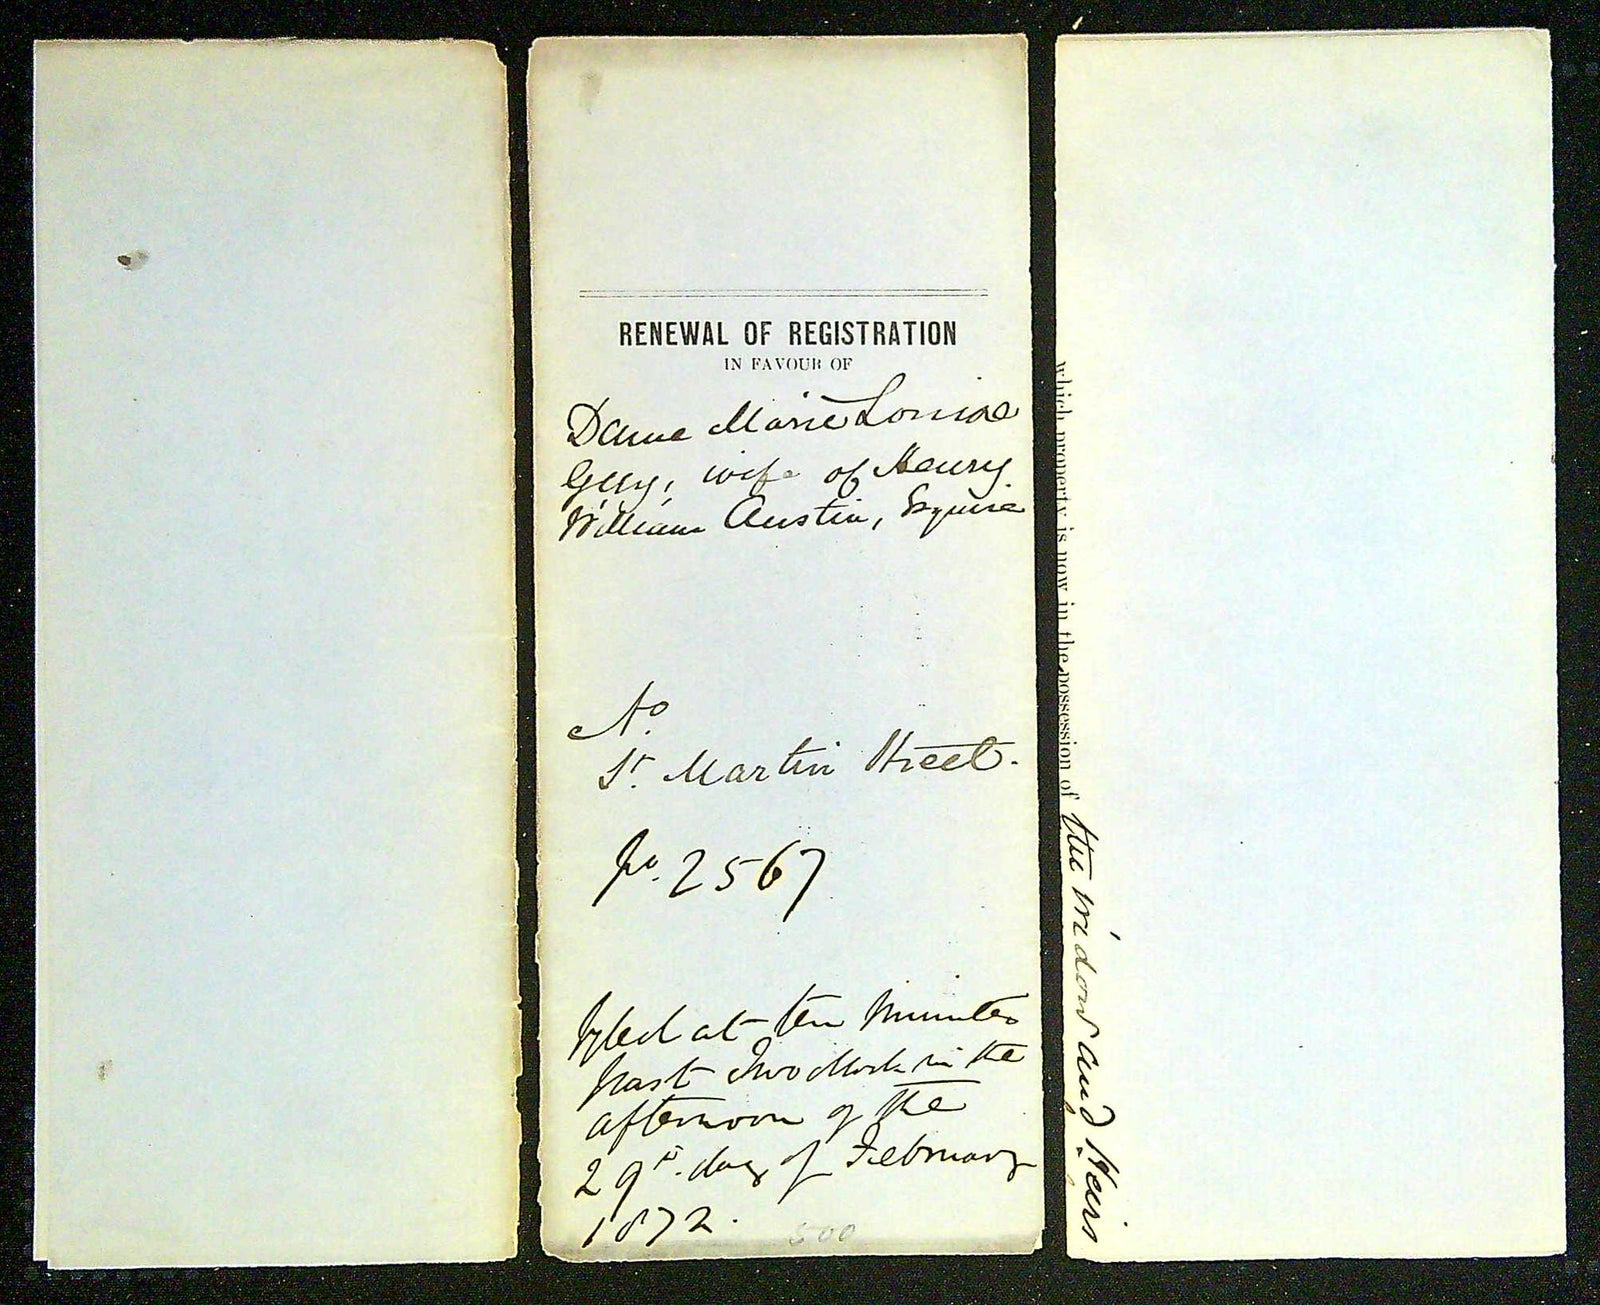 RENEWAL OF REGISTRATION
IN FAVOUR OF
Dame Marie Louise
Guy, wife of Henry
William Austin, Esquire
No.
St. Martin Street.
No. 2567
Fyled at ten Minutes
past Two oClock in the
afternoon of the
29th. day of February
1872.
500
which property is now in the possession of the widow and Heirs